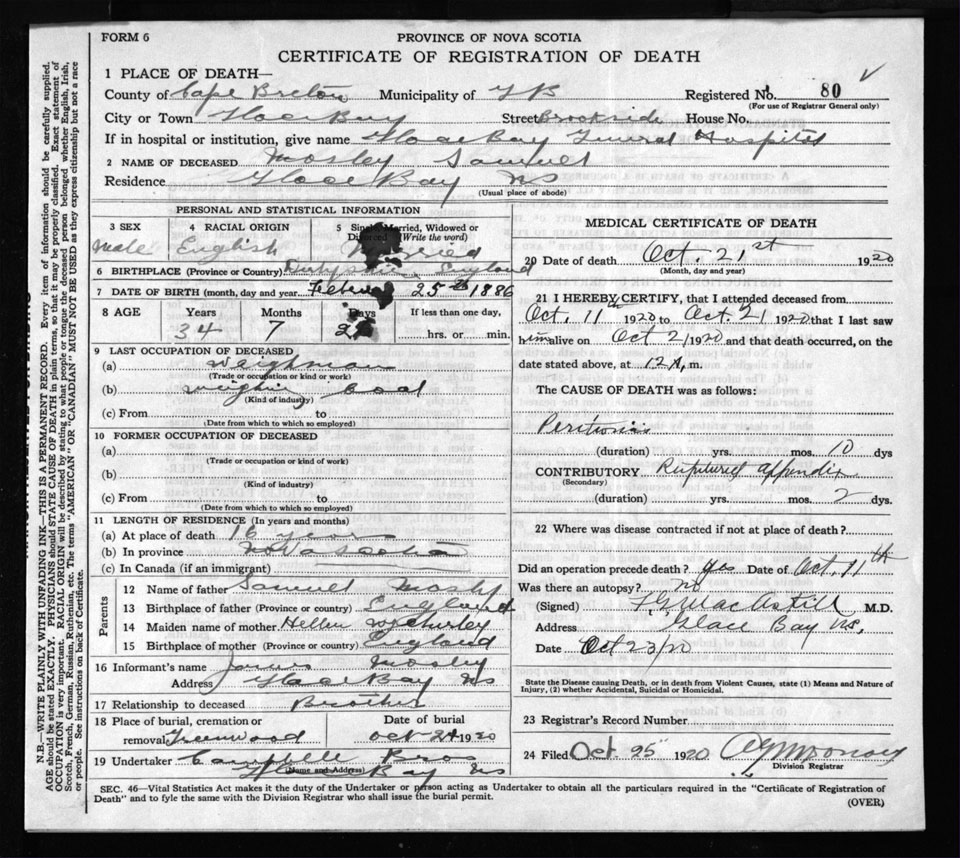 FORM 6
PROVINCE OF NOVA SCOTIA
CERTIFICATE OF REGISTRATION OF DEATH
1 PLACE OF DEATH—
County of Cape Breton Municipality of G B Registered No. 80
(For use of Registrar General only)
City or Town Glace Bay Street Brookside House No.
If in hospital or institution, give name Glace Bay General Hospital
2 NAME OF DECEASED Mosley Samuel
Residence Glace Bay NS
(Usual place of abode)
PERSONAL AND STATISTICAL INFORMATION
3 SEX 4 RACIAL ORIGIN 5 Single, Married, Widowed or Divorced (Write the word)
male English Married
6 BIRTHPLACE (Province or Country) England
7 DATE OF BIRTH (month, day and year) 25th 1886
8 AGE Years Months Days If less than one day,
34 7 hrs. or min.
9 LAST OCCUPATION OF DECEASED
(a) Weighman
(Trade or occupation or kind or work)
(b) weighing coal
(Kind of industry)
(c) From to
(Date from which to which so employed)
10 FORMER OCCUPATION OF DECEASED
(a)
(Trade or occupation or kind of work)
(b)
(Kind of industry)
(c) From to
(Date from which to which so employed)
11 LENGTH OF RESIDENCE (In years and months)
(a) At place of death 16 years
(b) In province Nova Scotia
(c) In Canada (if an immigrant)
Parents
12 Name of father Samuel Mosley
13 Birthplace of father (Province or country) England
14 Maiden name of mother Hellen
15 Birthplace of mother (Province or country) England
16 Informant's name James Mosley
Address Glace Bay NS
17 Relationship to deceased Brother
18 Place of burial, cremation or Date of burial
removal Greenwood Oct 24 1920
19 Undertaker Campbell Bros
(Name and Address) Glace Bay NS
MEDICAL CERTIFICATE OF DEATH
20 Date of death Oct. 21st 1920
(Month, day and year)
21 I HEREBY CERTIFY, that I attended deceased from
Oct. 11th 1920 to Oct. 21 1920 that I last saw
him alive on Oct 21 1920 and that death occurred, on the
date stated above, at 12 A. m.
The CAUSE OF DEATH was as follows:
Peritonitis
(duration) yrs. mos. 10 dys
CONTRIBUTORY Ruptured appendix
(Secondary)
(duration) yrs. mos. 2 dys.
22 Where was disease contracted if not at place of death?
Did an operation precede death? yes Date of Oct. 11th
Was there an autopsy? no
(Signed) M.D.
Address Glace Bay NS,
Date Oct 23/20
State the Disease causing Death, or in death from Violent Causes, state (1) Means and Nature of
Injury, (2) whether Accidental, Suicidal or Homicidal.
23 Registrar's Record Number
24 Filed Oct. 25 1920
Division Registrar
SEC. 46—Vital Statistics Act makes it the duty of the Undertaker or person acting as Undertaker to obtain all the particulars required in the "Certificate of Registration of
Death" and to fyle the same with the Division Registrar who shall issue the burial permit.
(OVER)
N.B.—WRITE PLAINLY WITH UNFADING INK—THIS IS A PERMANENT RECORD. Every item of information should be carefully supplied.
AGE should be stated EXACTLY. PHYSICIANS should STATE CAUSE OF DEATH in plain terms, so that it may be properly classified. Exact statement of
OCCUPATION is very important. RACIAL ORIGIN will be described by stating to what people or tongue the deceased person belonged whether English, Irish,
Scotch, French, German, Russian, Ruthenian, etc. The terms "AMERICAN" OR "CANADIAN" MUST NOT BE USED as they express citizenship but not a race
or people. See instructions on back of Certificate.